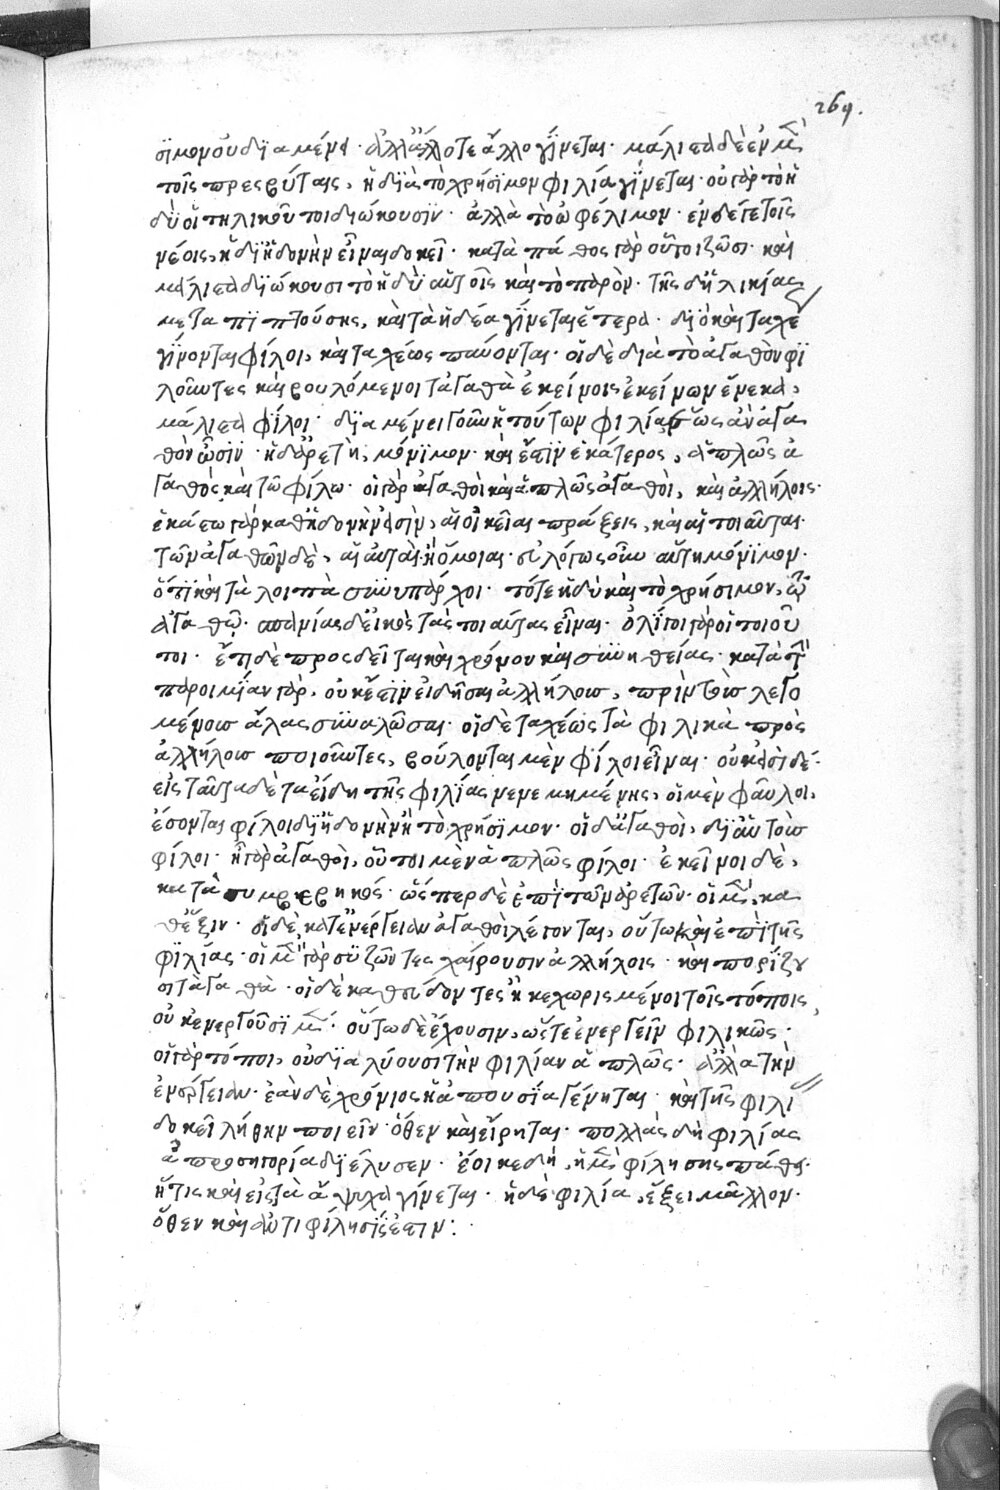 269.
σϊμον οὐ δϊαμένει· ἀλλ' ἄλλοτε ἄλλο γίνεται· μάλιστα δὲ ἐν μὲν
τοῖς πρεσβύταις, ἡ δϊὰ τὸ χρήσϊμον φιλία γίνεται· οὐ γὰρ τὸ ἡ
δὺ οἱ τηλικοῦτοι διώκουσϊν· ἀλλὰ τὸ ὠφέλιμον· ἐν δέ γε τοῖς
νέοις, ἡ δι' ἡδονὴν εἶναι δοκεῖ· κατὰ πάθος γὰρ οὗτοι ζῶσι· καὶ
μάλιστα διώκουσι τὸ ἡδὺ αὑτοῖς καὶ τὸ παρόν· τῆς δ' ἡλικίας
μεταπιπτούσης, καὶ τὰ ἡδέα γίνεται ἕτερα· διὸ καὶ ταχέ
γίνονται φίλοι, καὶ ταχέως παύονται· οἱ δὲ διὰ τὸ ἀγαθὸν φι
λοῦντες καὶ βουλόμενοι τἀγαθὰ ἐκείνοις ἐκείνων ἕνεκα,
μάλιστα φίλοι· δϊαμένει γοῦν ἡ τούτων φιλία ἕως ἂν ἀγα
θοὶ ὦσϊν· ἡ δ' ἀρετὴ, μόνϊμον· καὶ ἔστϊν ἑκάτερος, ἁπλῶς ἀ
γαθὸς καὶ τῶ φίλω· οἱ γὰρ ἀγαθοὶ καὶ ἁπλῶς ἀγαθοὶ, καὶ ἀλλήλοις·
ἑκάστω γὰρ καθ' ἡδονήν εἰσϊν, αἱ οἰκεῖαι πράξεις, καὶ αἱ τοιαῦται·
τῶν ἀγαθῶν δὲ, αἱ αὐταὶ ἢ ὅμοιαι· εὐλόγως οὖν αὕτη μόνϊμον·
ὅτϊ καὶ τὰ λοιπὰ συνυπάρχοι· τότε ἡδὺ καὶ τὸ χρήσιμον, τῶ
ἀγαθῶ· σπανίας δ' εἰκὸς τὰς τοιαύτας εἶναι· ὀλίγοι γὰρ οἱ τοιοῦ
τοι· ἔτι δὲ προσδεῖται καὶ χρόνου καὶ συνηθείας· κατὰ τὴν
παροιμίαν γὰρ, οὐκ ἔστϊν εἰδῆσαι ἀλλήλους, πρὶν τοὺς λεγο
μένους ἅλας συναλῶσαι· οἱ δὲ ταχέως τὰ φιλικὰ πρὸς
ἀλλήλους ποιοῦντες, βούλονται μὲν φίλοι εἶναι· οὐκ εἰσὶ δέ·
εἰς ταῦτα δὲ τὰ εἴδη τῆς φιλίας νενεμημένης, οἱ μὲν φαῦλοι,
ἔσονται φίλοι δϊ' ἡδονὴν ἢ τὸ χρήσϊμον· οἱ δ' ἀγαθοὶ, δϊ' αὑτοὺς
φίλοι· ᾗ γὰρ ἀγαθοὶ, οὗτοι μὲν ἁπλῶς φίλοι· ἐκεῖνοι δὲ,
κατὰ συμβεβηκός· ὥσπερ δὲ ἐπὶ τῶν ἀρετῶν· οἱ μὲν, κα
θ' ἕξιν· οἱ δὲ, κατ' ἐνέργειαν ἀγαθοὶ λέγονται, οὕτω καὶ ἐπὶ τῆς
φϊλίας· οἱ μὲν γὰρ συζῶντες χαίρουσιν ἀλλήλοις· καὶ πορίζου
σι τἀγαθά· οἱ δὲ καθεύδοντες ἢ κεχωρισμένοι τοῖς τόποις,
οὐκ ἐνεργοῦσϊ μέν· οὕτω δὲ ἔχουσιν, ὥστε ἐνεργεῖν φιλικῶς·
οἱ γὰρ τόποι, οὐ διαλύουσι τὴν φιλίαν ἁπλῶς· ἀλλὰ τὴν
ἐνέργειαν· ἐὰν δὲ χρόνιος ἡ ἀπουσία γένηται· καὶ τῆς φιλί
δοκεῖ λήθην ποιεῖν· ὅθεν καὶ εἴρηται· πολλὰς δὴ φιλίας
ἀπροσηγορία δϊέλυσεν· ἔοικε δὴ, ἡ μὲν φίλησις πάθει·
ἥτις καὶ εἰς τὰ ἄψυχα γίνεται· ἡ δὲ φιλία, ἕξει μᾶλλον·
ὅθεν καὶ ἀντιφίλησίς ἐστιν: